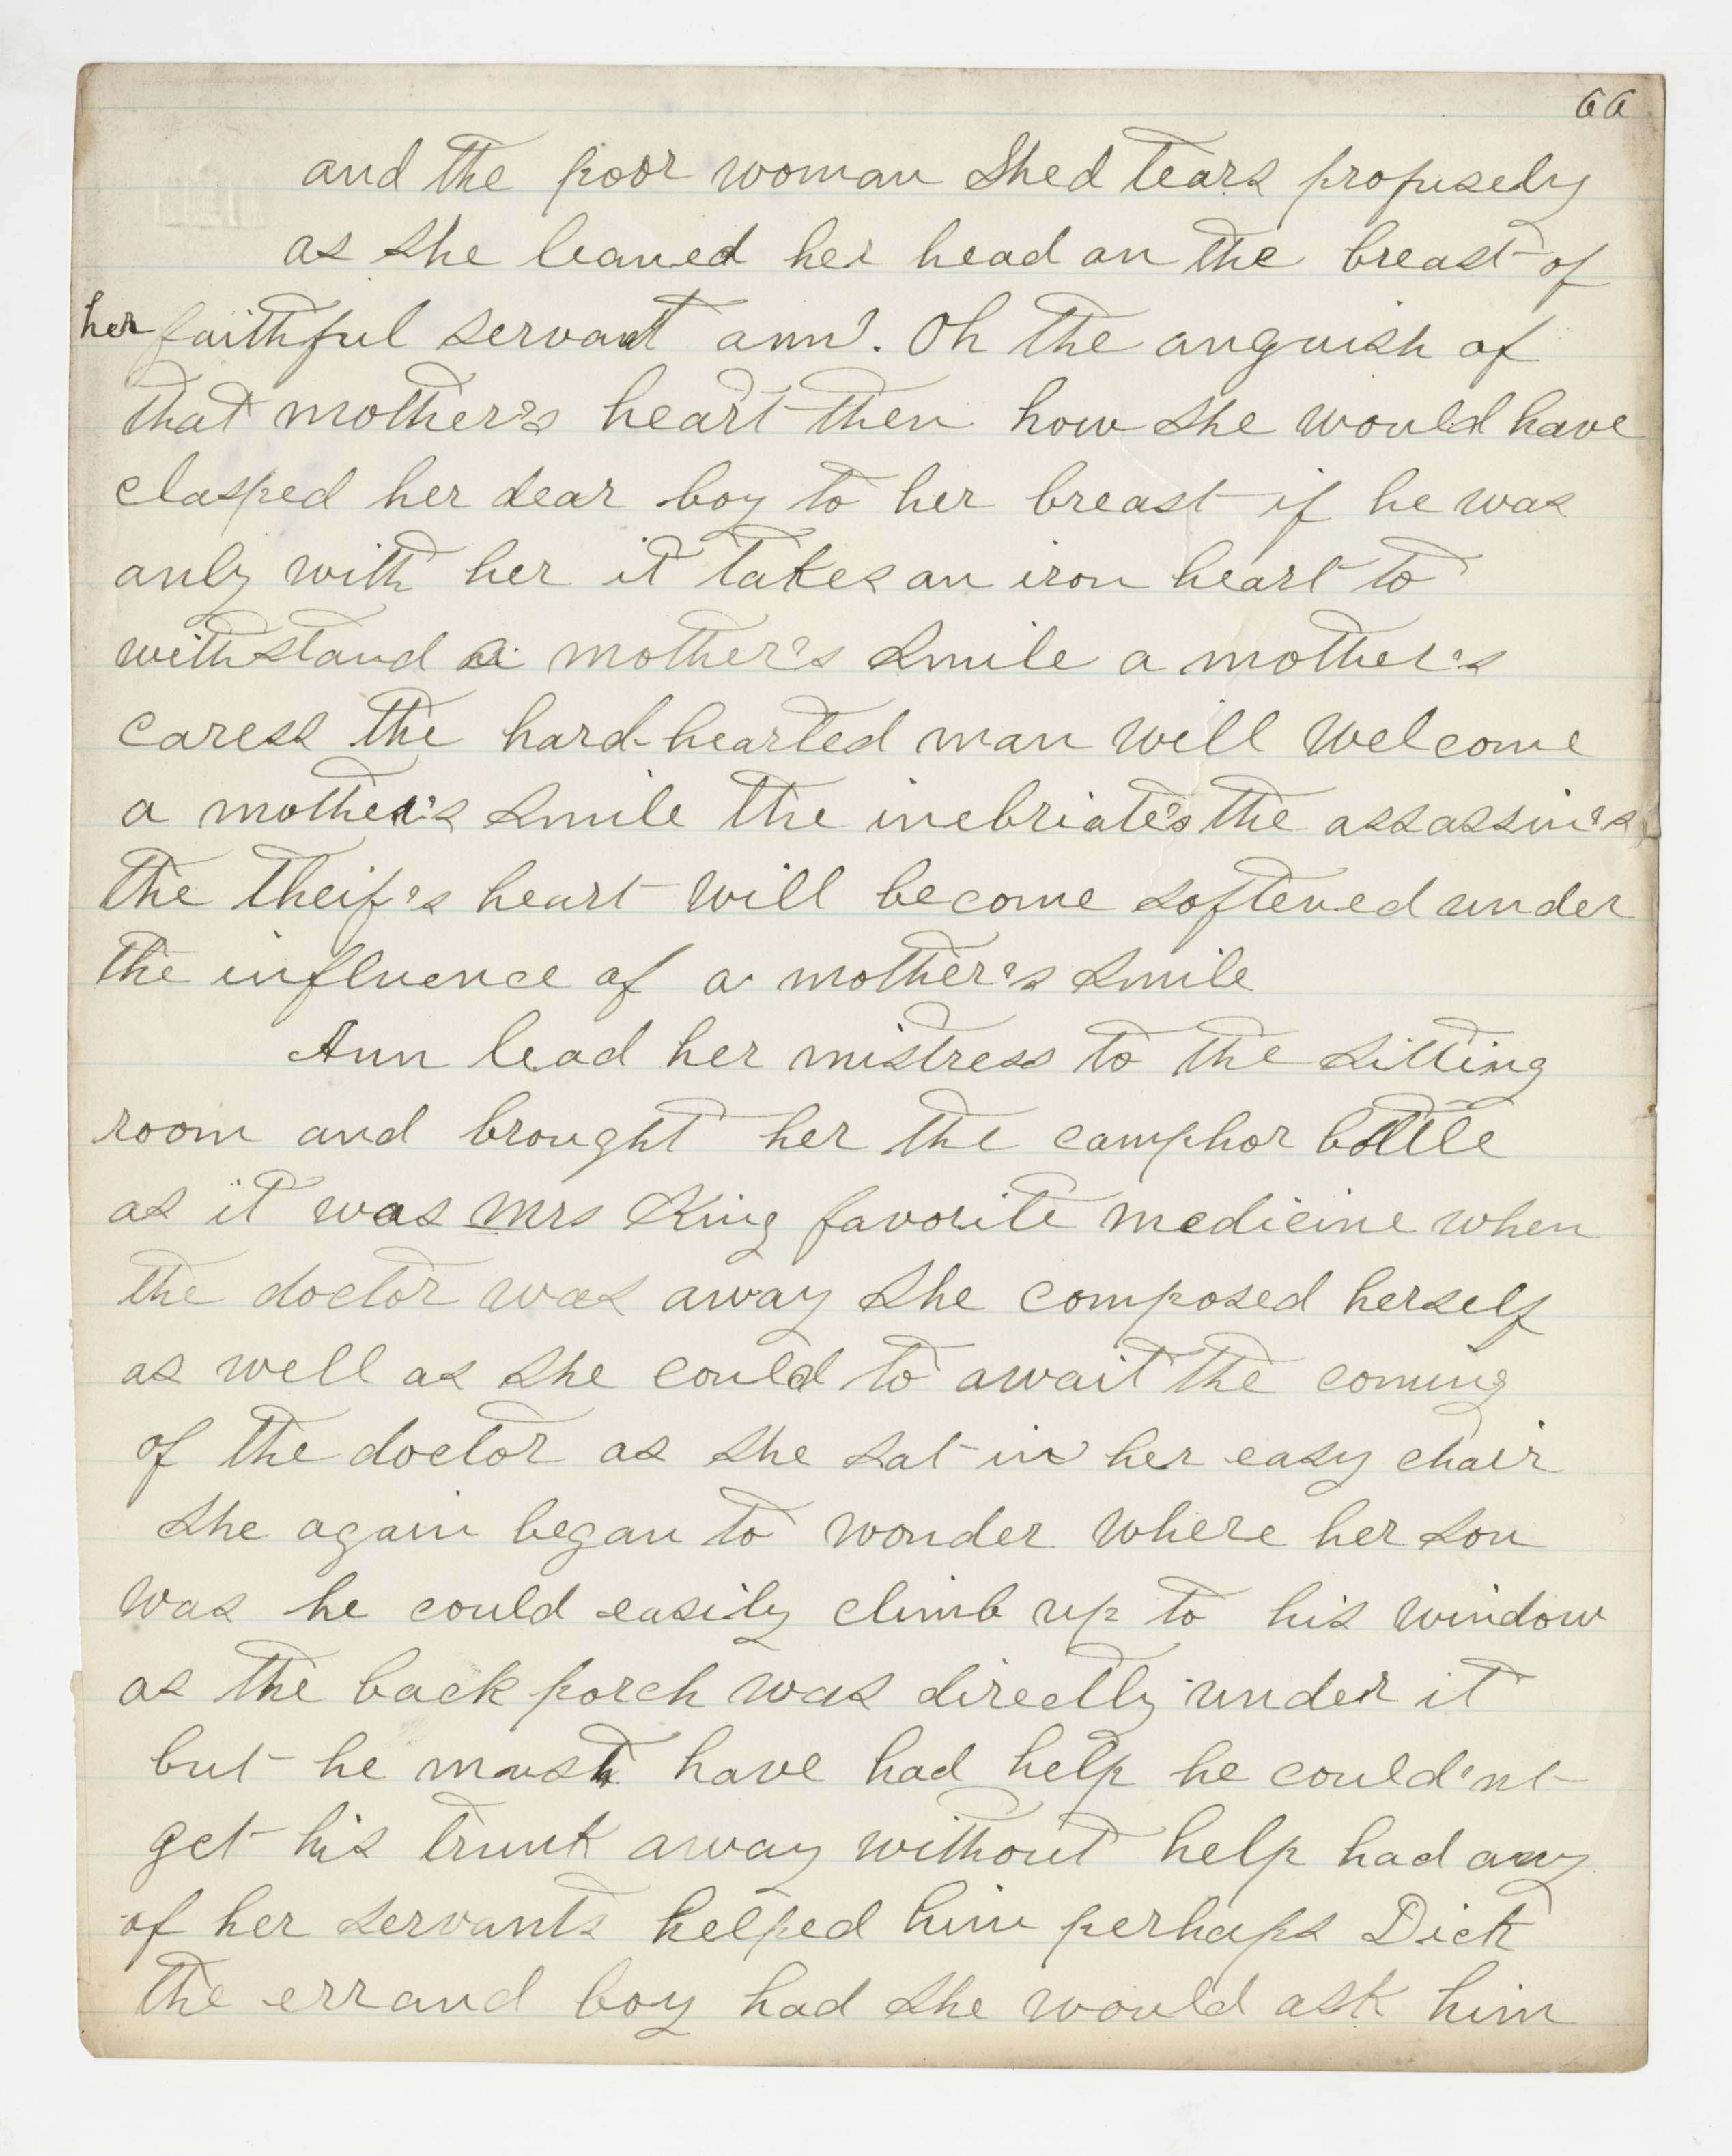 66
and the poor woman shed tears profusedly
as she leaned her head on the breast of
her faithful servant ann. Oh the anguish of
that mother's heart then how she would have
clasped her dear boy to her breast if he was
only with her it takes an iron heart to
withstand a mother's smile a mother's
caress the hard-hearted man will welcome
a mother's smile the inebriate's the assassin's
the theif's heart will become softened under
the influence of a mother's smile
Ann lead her mistress to the sitting
room and brought her the camphor bottle
as it was Mrs King favorite medicine when
the doctor was away she composed herself
as well as she could to await the coming
of the doctor as she sat in her easy chair
she again began to wonder where her son
was he could easily climb up to his window
as the back porch was directly under it
but he must have had help he could'nt
get his trunk away without help had any
of her servants helped him perhaps Dick
the errand boy had she would ask him